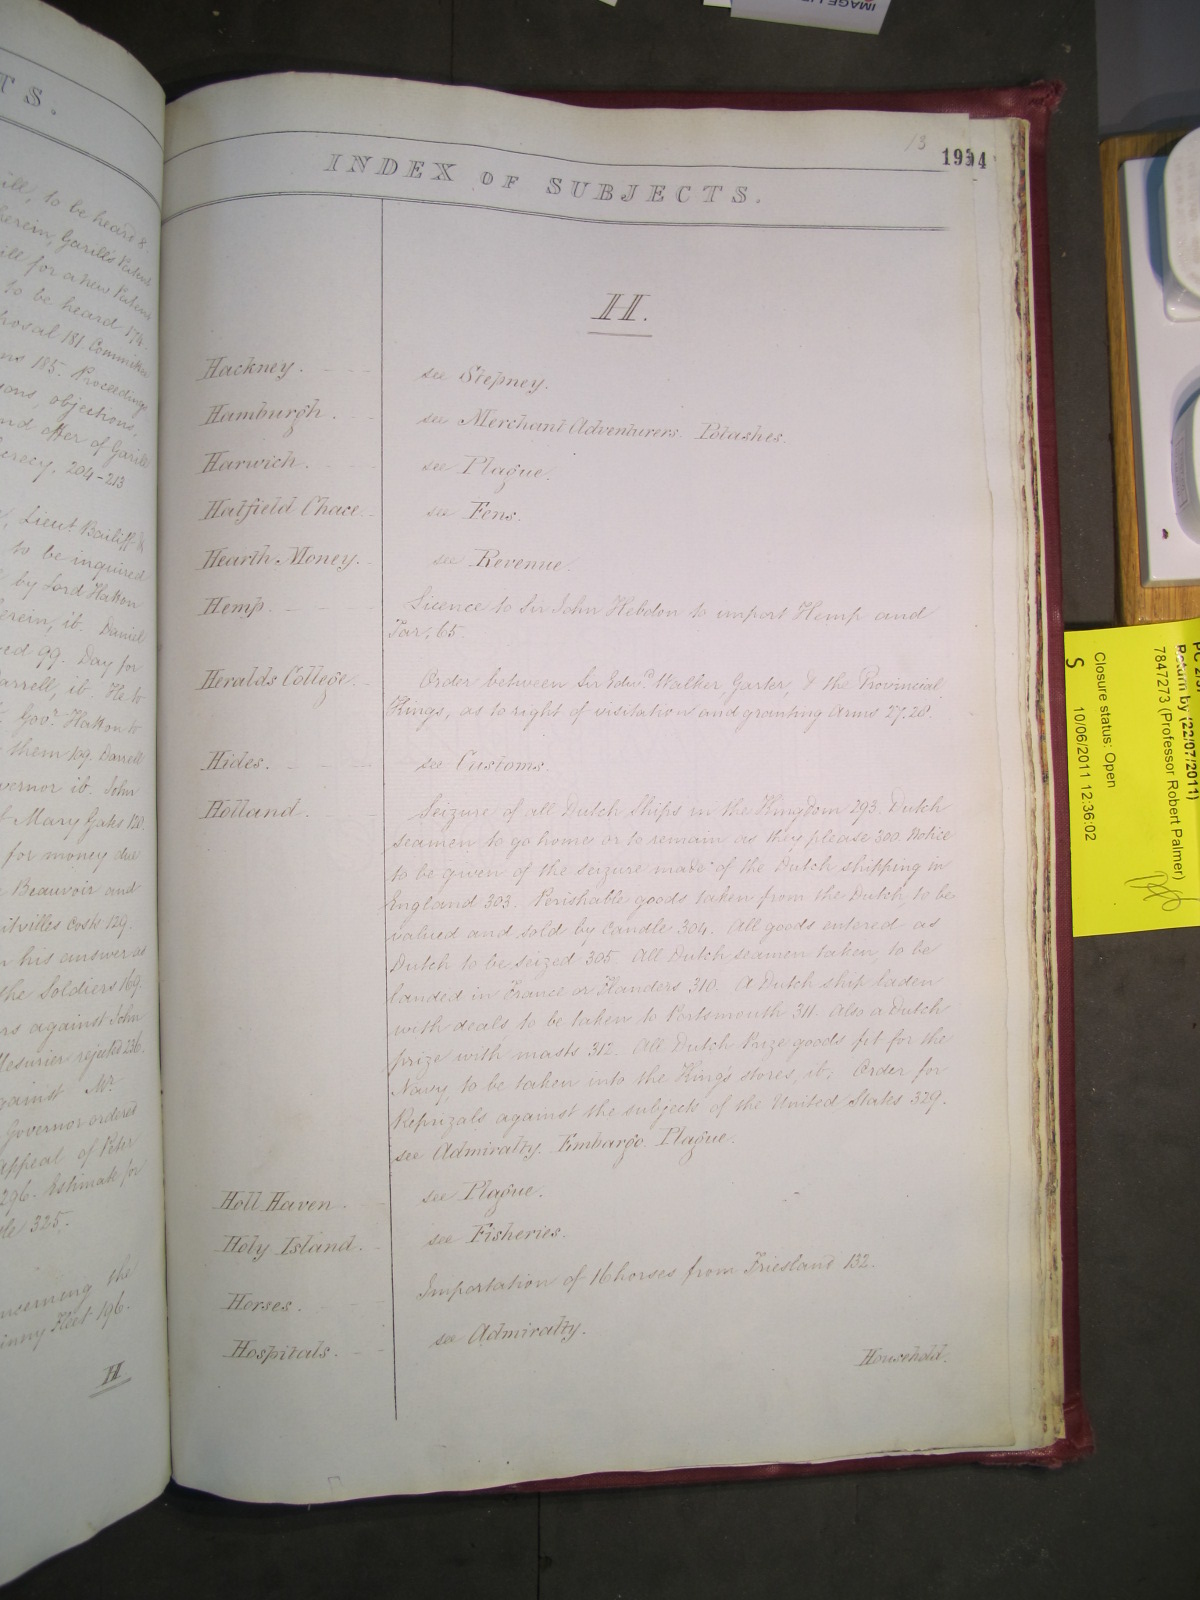 TS.
ill, to be heard &
ill for a new Patent
to be heard 174.
posal 181 Committee
ns 185. Proceedings,
ons, objections,
nd offer of Garill
crecy, 204-213
Lieut Bailiff
to be inquired
by Lord Hatton
erein, ib. Daniel
ed 99. Day for
arrell, ib. He to
Govr. Hatton to
them 109. Darrell
vernor ib. John
Mary Gates 120.
for money due
Beauvoir and
itvilles costs 129.
his answer as
the Soldiers 169.
rs against John
Mesurier rejected 236.
gainst Mr
Governor ordered
Appeal of Peter
296. Estimate for
le 325.
ncerning the
Fleet 196.
H
13
1934
INDEX OF SUBJECTS.
H.
Hackney. see Stepney.
Hamburgh. see Merchant Adventurers. Potashes.
Harwich. see Plague.
Hatfield Chace. see Fens.
Hearth Money. see Revenue.
Hemp. Licence to Sir John Hebdon to import Hemp and
Tar, 65.
Heralds College. Order between Sir Edwd. Walker, Garter, & the Provincial
Kings, as to right of visitation and granting Arms 27.28.
Hides. see Customs.
Holland. Seizure of all Dutch Ships in the Kingdom 293. Dutch
seamen to go home or to remain as they please 300. Notice
to be given of the seizure made of the Dutch shipping in
England 303. Perishable goods taken from the Dutch, to be
valued and sold by Candle 304. All goods entered as
Dutch to be seized 305. All Dutch seamen taken, to be
landed in France or Flanders 310. A Dutch ship laden
with deals to be taken to Portsmouth 311. Also a Dutch
prize with masts 312. All Dutch Prize goods fit for the
Navy, to be taken into the King's stores, ib; Order for
Reprizals against the subjects of the United States 329.
see Admiralty. Embargo. Plague.
Holl Haven. see Plague.
Holy Island. see Fisheries.
Horses. Importation of 16 horses from Friesland 132.
Hospitals. see Admiralty.
Household.
Return by (22/07/2011)
7847273 (Professor Robert Palmer)
Closure status: Open
10/06/2011 12:36:02
S